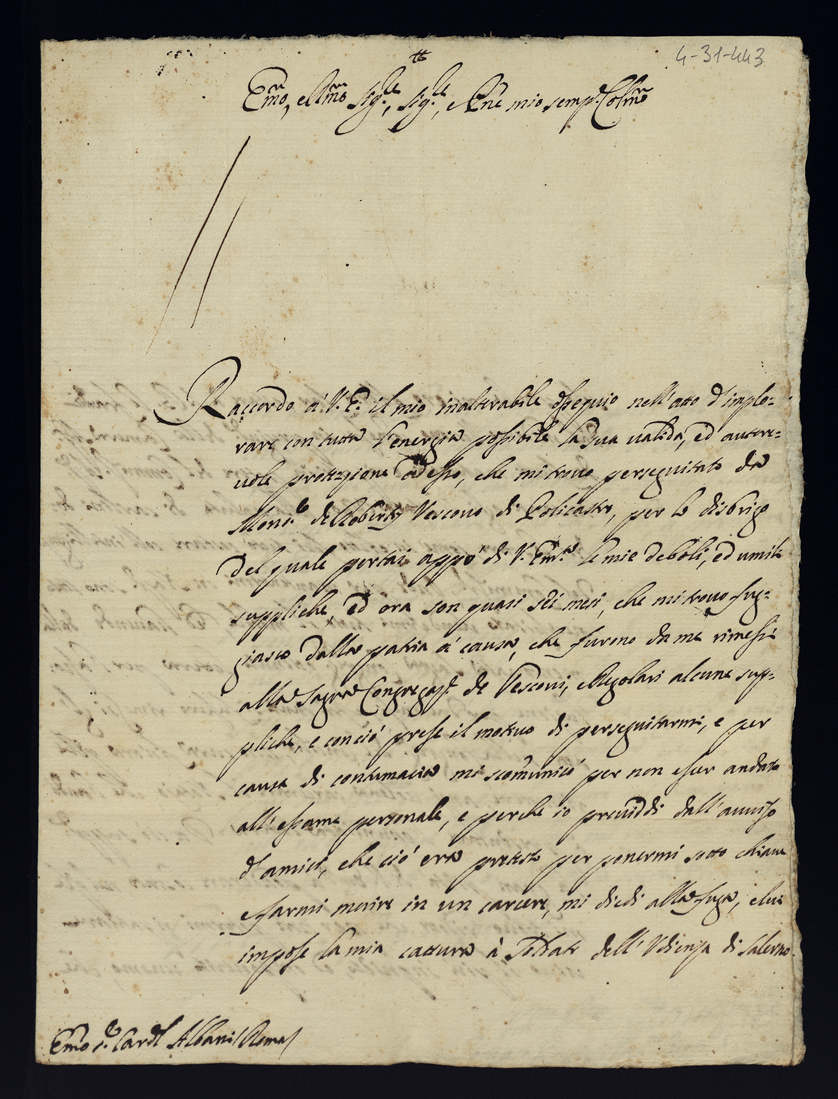 4-31-443
Em̃o, e Rm̃o Sig.re, Sig.re, e Prñe mio semp. Colm̃o
Raccordo a' V. E. il mio inalterabile ossequio nell'atto d'implo-
rare con tutta l'energia possibile la sua valida, ed autore-
vole protezione adesso, che mi trovo perseguitato da
Mons.re de Robertis Vescovo di Policastro, per lo disbrigo
del quale portai appo' di V. Em.za le mie deboli, ed umili
suppliche, ed ora son quasi sei mesi, che mi trovo fug-
giasco dalla patria a' causa, che furono da me rimesse
alla Sagra Congregaz.e de Vescovi, e Regolari alcune sup-
pliche, e con ciò prese il motivo di perseguitarmi, e per
causa di contumacia mi scomunicò per non esser andato
all'esame personale, e perche io previddi dall'avviso
d'amici, che ciò era pretesto per ponermi sotto chiave
e farmi morire in un carcere, mi diedi alla fuga, e lui
impose la mia cattura à Soldati dell'Udienza di Salerno.
Em̃o S.r Card.l Albani Roma